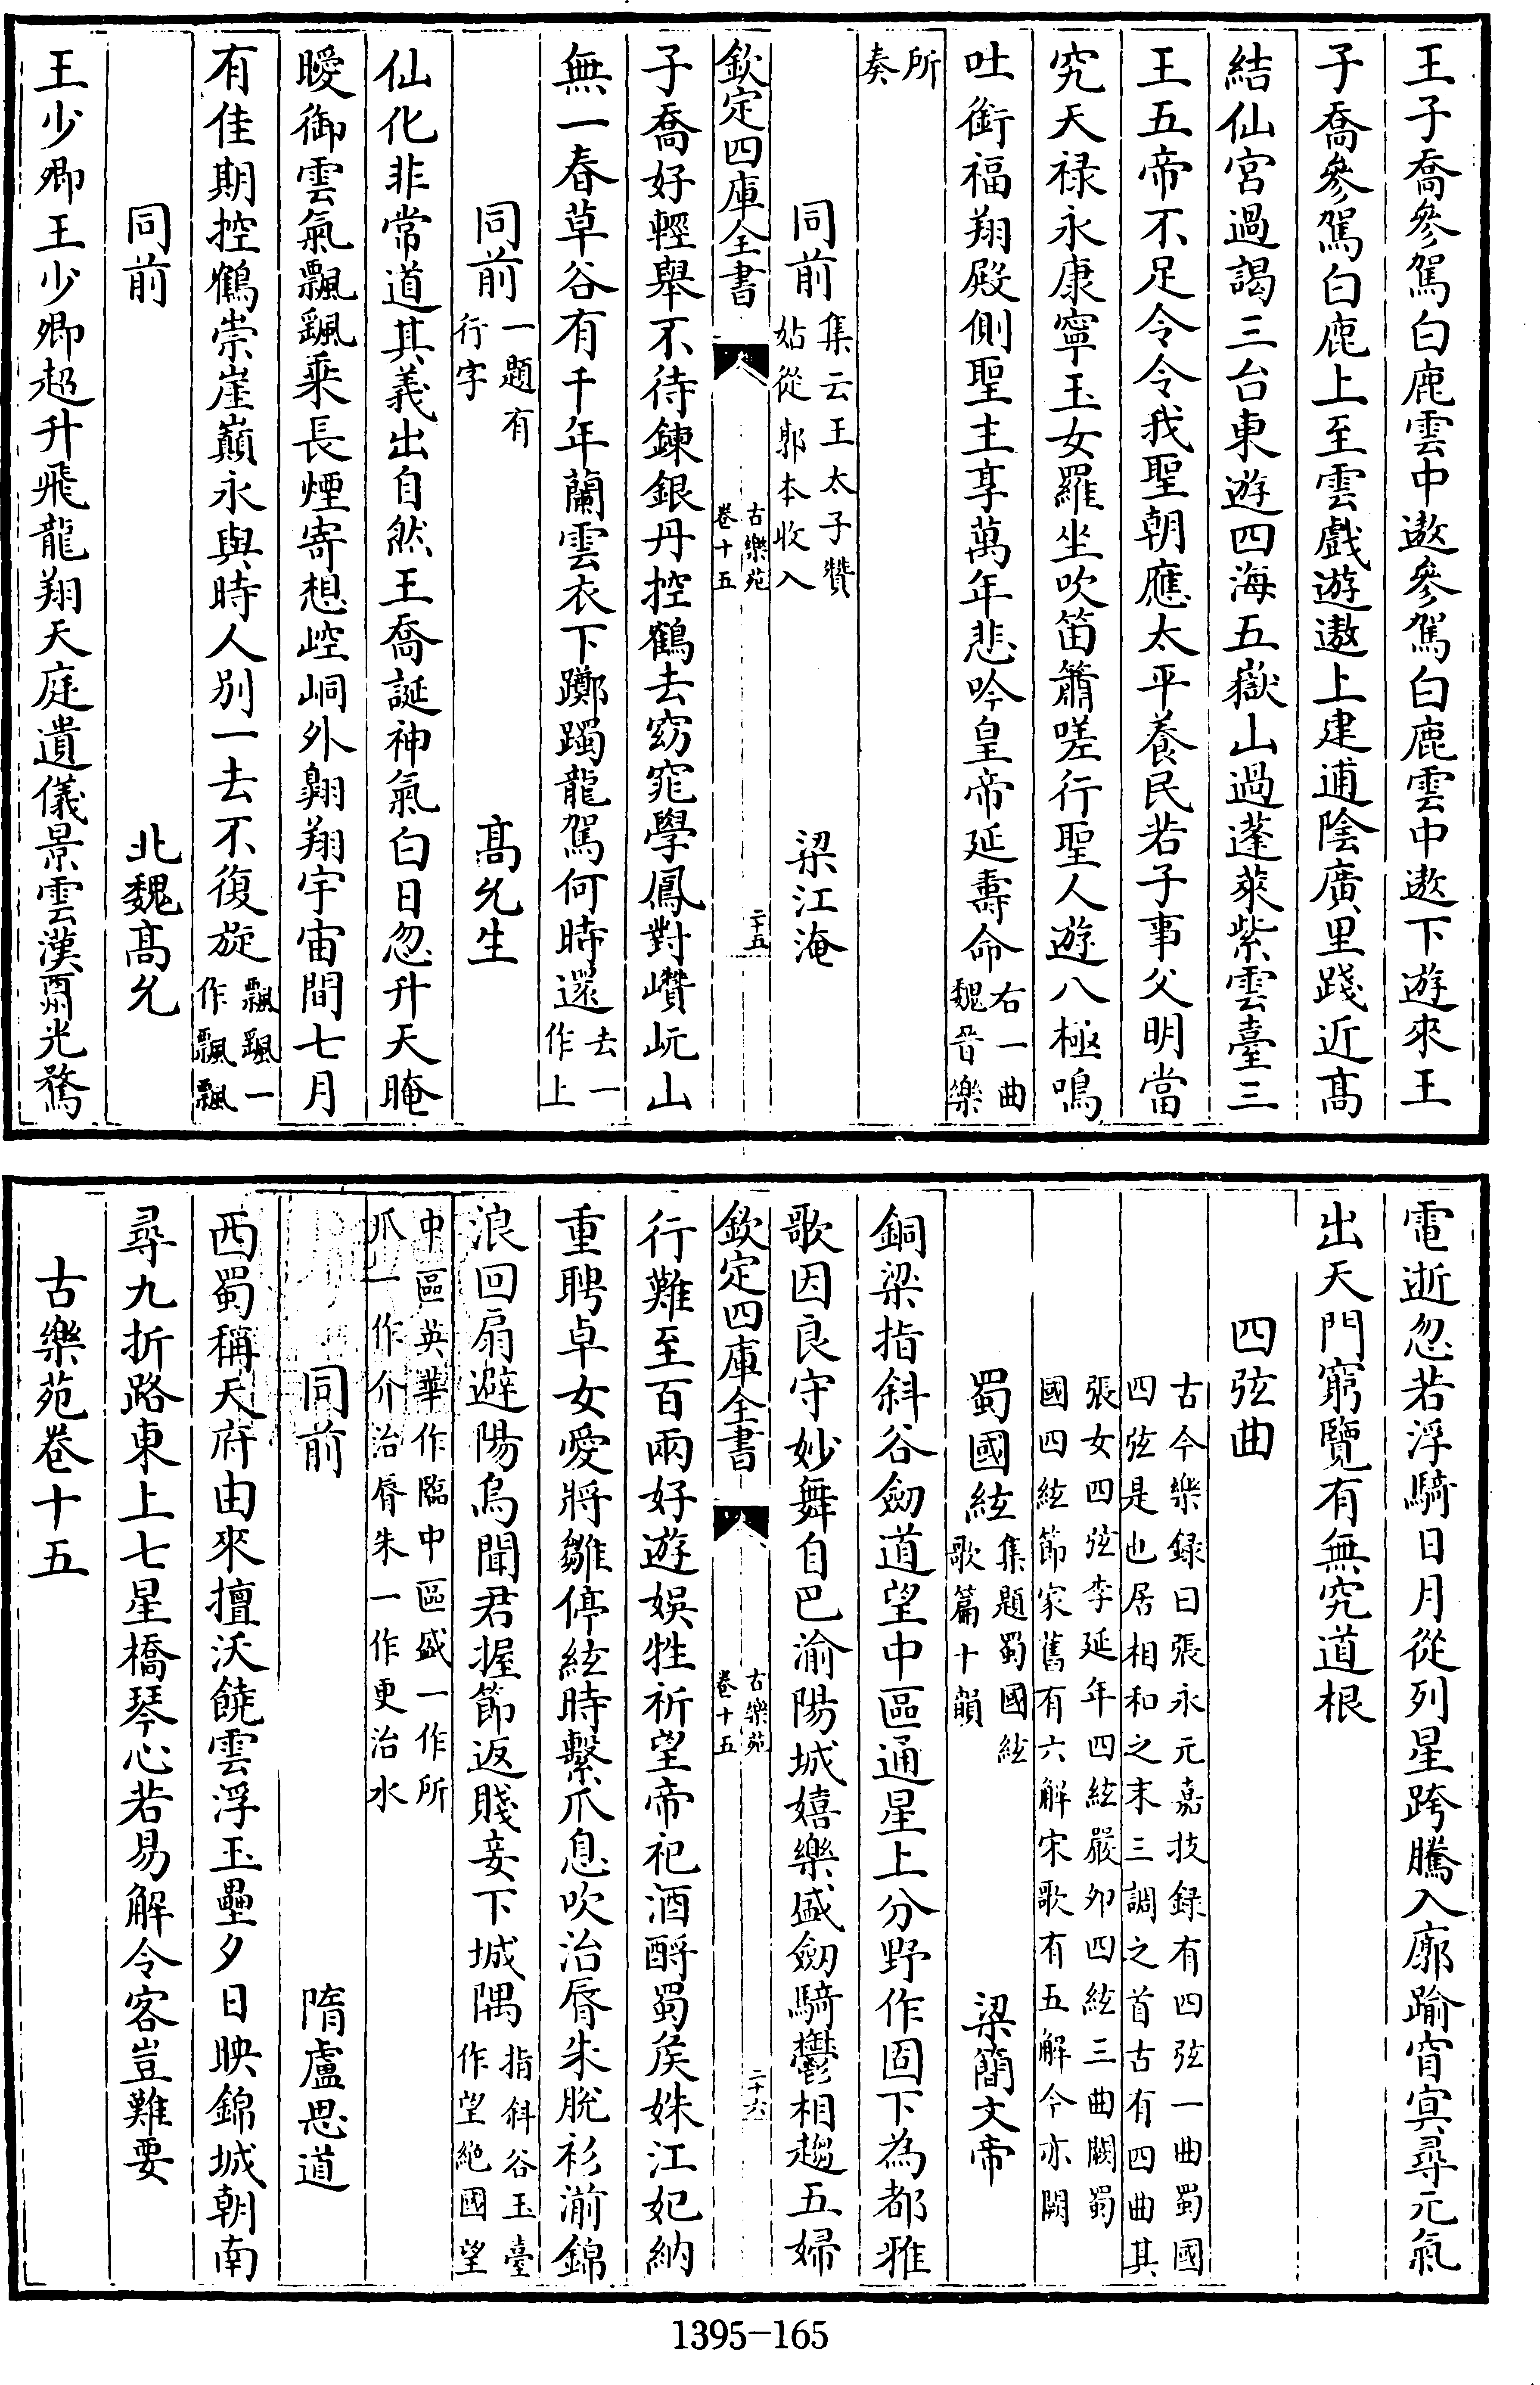 王子喬參駕白鹿雲中遨參駕白鹿雲中遨下遊來王
子喬參駕白鹿上至雲戲遊遨上建逋陰廣里踐近高
結仙宮過謁三台東遊四海五嶽山過蓬萊紫雲臺三
王五帝不足令令我聖朝應太平養民若子事父明當
究天祿永康寧玉女羅坐吹笛簫嗟行聖人遊八極鳴
吐銜福翔殿側聖主享萬年悲吟皇帝延壽命右一曲魏晉樂
所奏
同前集云王太子贊姑從郭本收入 梁江淹
欽定四庫全書 古樂苑卷十五 二十五
子喬好輕舉不待鍊銀丹控鶴去窈窕學鳳對巑岏山
無一春草谷有千年蘭雲衣下躑躅龍駕何時還去一作上
同前一題有行字 高允生
仙化非常道其義出自然王喬誕神氣白日忽升天晻
曖御雲氣飄颻乘長煙寄想崆峒外翺翔宇宙間七月
有佳期控鶴崇崖巔永與時人別一去不復旋飄颻一作飄飄
同前 北魏高允
王少卿王少卿超升飛龍翔天庭遺儀景雲漢酬光騖
電逝忽若浮騎日月從列星跨騰入廓踰窅冥尋元氣
出天門窮覽有無究道根
四弦曲
古今樂録曰張永元嘉技録有四弦一曲蜀國
四弦是也居相和之末三調之首古有四曲其
張女四弦李延年四絃嚴卯四絃三曲闕蜀
國四絃節家舊有六解宋歌有五解今亦闕
蜀國絃集題蜀國絃歌篇十韻 梁簡文帝
銅梁指斜谷劒道望中區通星上分野作固下為都雅
歌因良守妙舞自巴渝陽城嬉樂盛劒騎鬱相趨五婦
欽定四庫全書 古樂苑卷十五 二十六
行難至百兩好遊娛牲祈望帝祀酒酹蜀侯姝江妃納
重聘卓女愛將雛停絃時繫爪息吹治脣朱脫衫湔錦
浪回扇避陽烏聞君握節返賤妾下城隅指斜谷玉臺作望絶國望
中區英華作臨中區盛一作所爪一作介治脣朱一作更治水
同前 隋盧思道
西蜀稱天府由來擅沃饒雲浮玉壘夕日映錦城朝南
尋九折路東上七星橋琴心若易解令客豈難要
古樂苑卷十五
1395-165